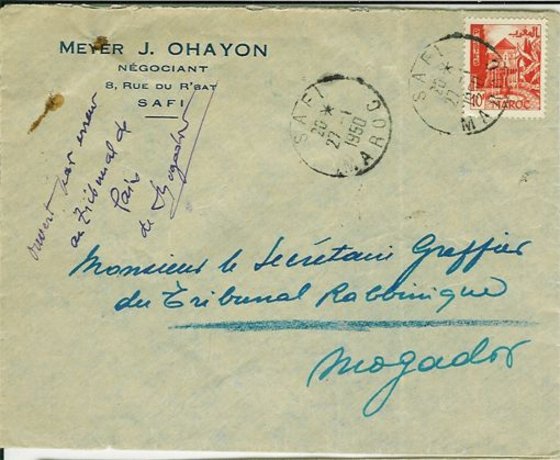 MEYER J. OHAYON
NÉGOCIANT
8, RUE DU R'BAT
SAFI
SAFI
20 *
27 -1
1950
MAROC
SAFI
20 *
27 -1
MAROC
10F
MAROC
ouvert par erreur
au Tribunal de
Paix
de Mogador
Monsieur le Secrétaire Greffier
du Tribunal Rabbinique
Mogador